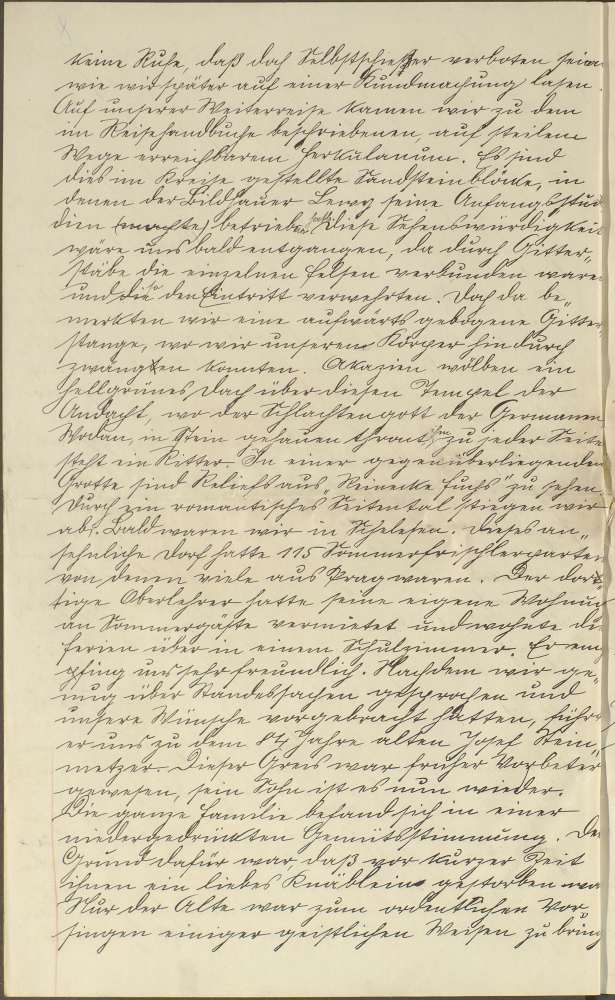 keine Ruhe, daß doch Selbstschießer verboten seien
wie wir später auf einer Kundmachung lasen.
Auf unserer Weiterreise kamen wir zu dem
im Reisehandbuche beschriebenen, auf steilem
Wege erreichbarem Herkulanum. Es sind
dies im Kreise gestellte Sandsteinblöcke, in
denen der Bildhauer Lewy seine Anfangsstu
dien (machte) betrieben hatte. Diese Sehenswürdigkeit
wäre uns bald entgangen, da durch Gitter„
stäbe die einzelnen Felsen verbunden ware
und die den Eintritt verwehrten. Doch da be„
merkten wir eine aufwärts gebogene Gitter„
stange, wo wir unseren Körper hindurch
zwängen konnten. Akazien wölben ein
hellgrünes Dach über diesen Tempel der
Andacht, wo der Schlachtengott der Germanen
Wodan, in Stein gehauen thront, zu jeder Seite
steht ein Ritter. In einer gegenüberliegenden
Grotte sind Reliefs aus „Reinecke Fuchs" zu sehen.
Durch ein romantisches Seitental stiegen wir
ab. Bald waren wir in Schelesen. Dieses an„
sehnliche Dorf hatte 115 Sommerfrischlerparteien
von denen viele aus Prag waren. Der dor
tige Oberlehrer hatte seine eigene Wohnung
an Sommergäste vermietet und wohnte di
Ferien über in einem Schulzimmer. Er em
pfing uns sehr freundlich. Nachdem wir ge„
nug über Standessachen gesprochen und
unsere Wünsche vorgebracht hatten, führt
er uns zu dem 84 Jahre alten Josef Stein„
metzer. Dieser Greis war früher Vorbeter
gewesen, sein Sohn ist es nun wieder.
Die ganze Familie befand sich in einer
niedergedrückten Gemütsstimmung. De
Grund dafür war, daß vor kurzer Zeit
ihnen ein liebes Knäblein gestorben wa
Nur der Alte war zum ordentlichen Vor„
singen einiger geistlichen Weisen zu bring